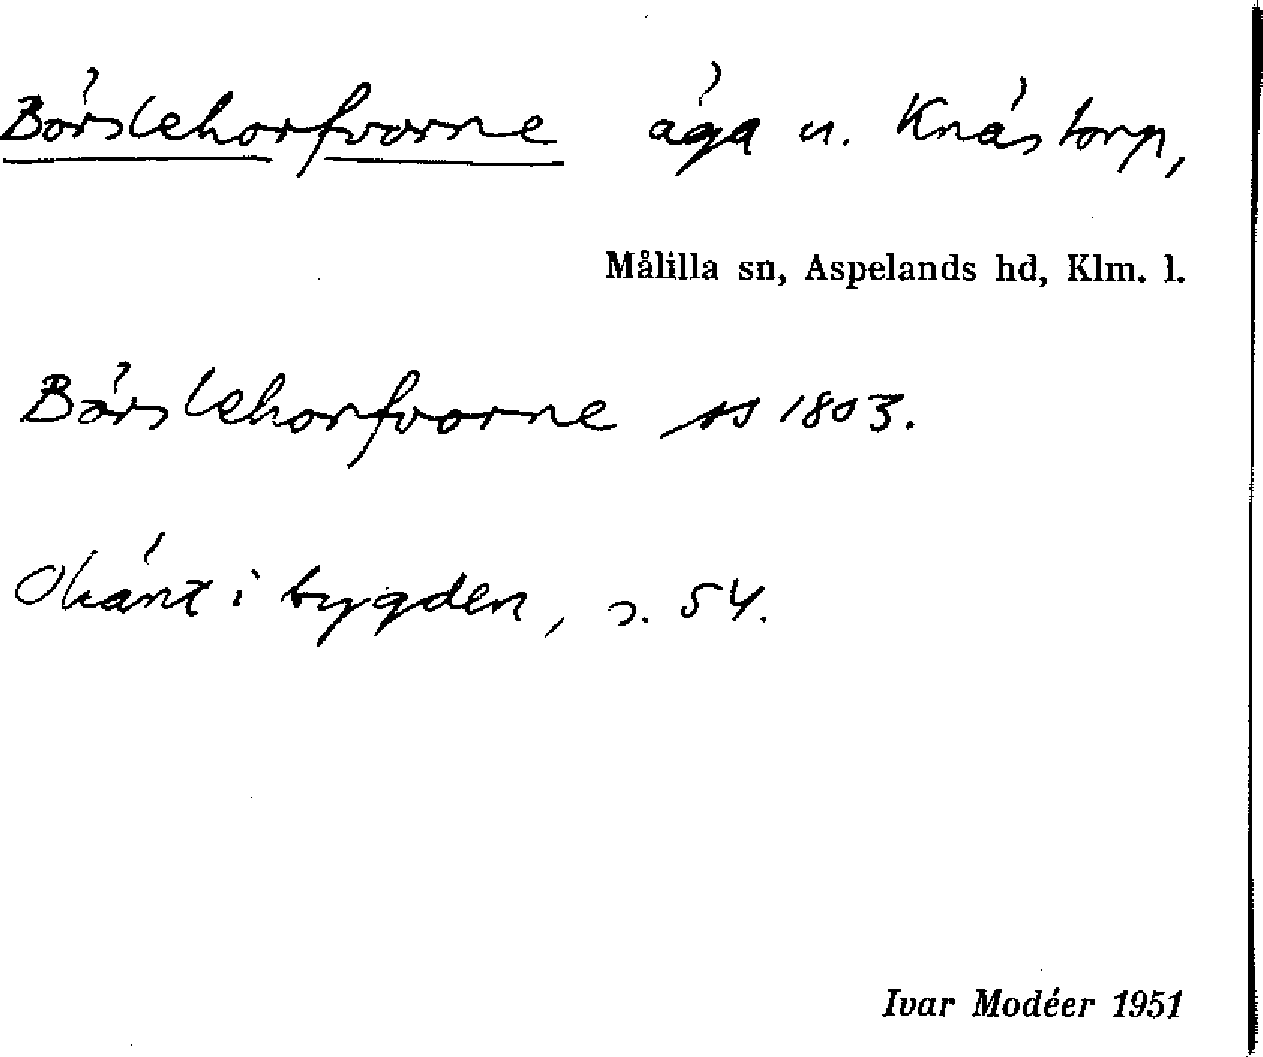 Börslehorfvorne äga u. Knästorp,
Målilla sn, Aspelands hd, Klm. l.
Börslehorfvorne 1803.
Okänt i bygden, s. 54.
Ivar Modéer 1951